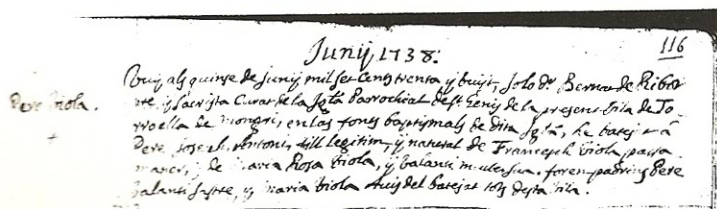 Junij 1738.
116
Pere Viola.
Vuÿ als quinse de Junij mil set Cents trenta ÿ buÿt, Jo lo Dr. Bernat de Ribot
pre. ÿ Sacrista Curat de la Jgla. Parrochial de St. Genis de la present Vila de To-
rroella de Mongri, en las fonts baptismals de dita Jgla. he batejat á
Pere Joseph Antoni, fill llegitim, ÿ natural de Francesch Viola passa
maner, ÿ de Maria Rosa Viola, ÿ Balanti muller sua. foren padrins Pere
Balanti sastre, ÿ Maria Viola del batejat tots desta Vila.